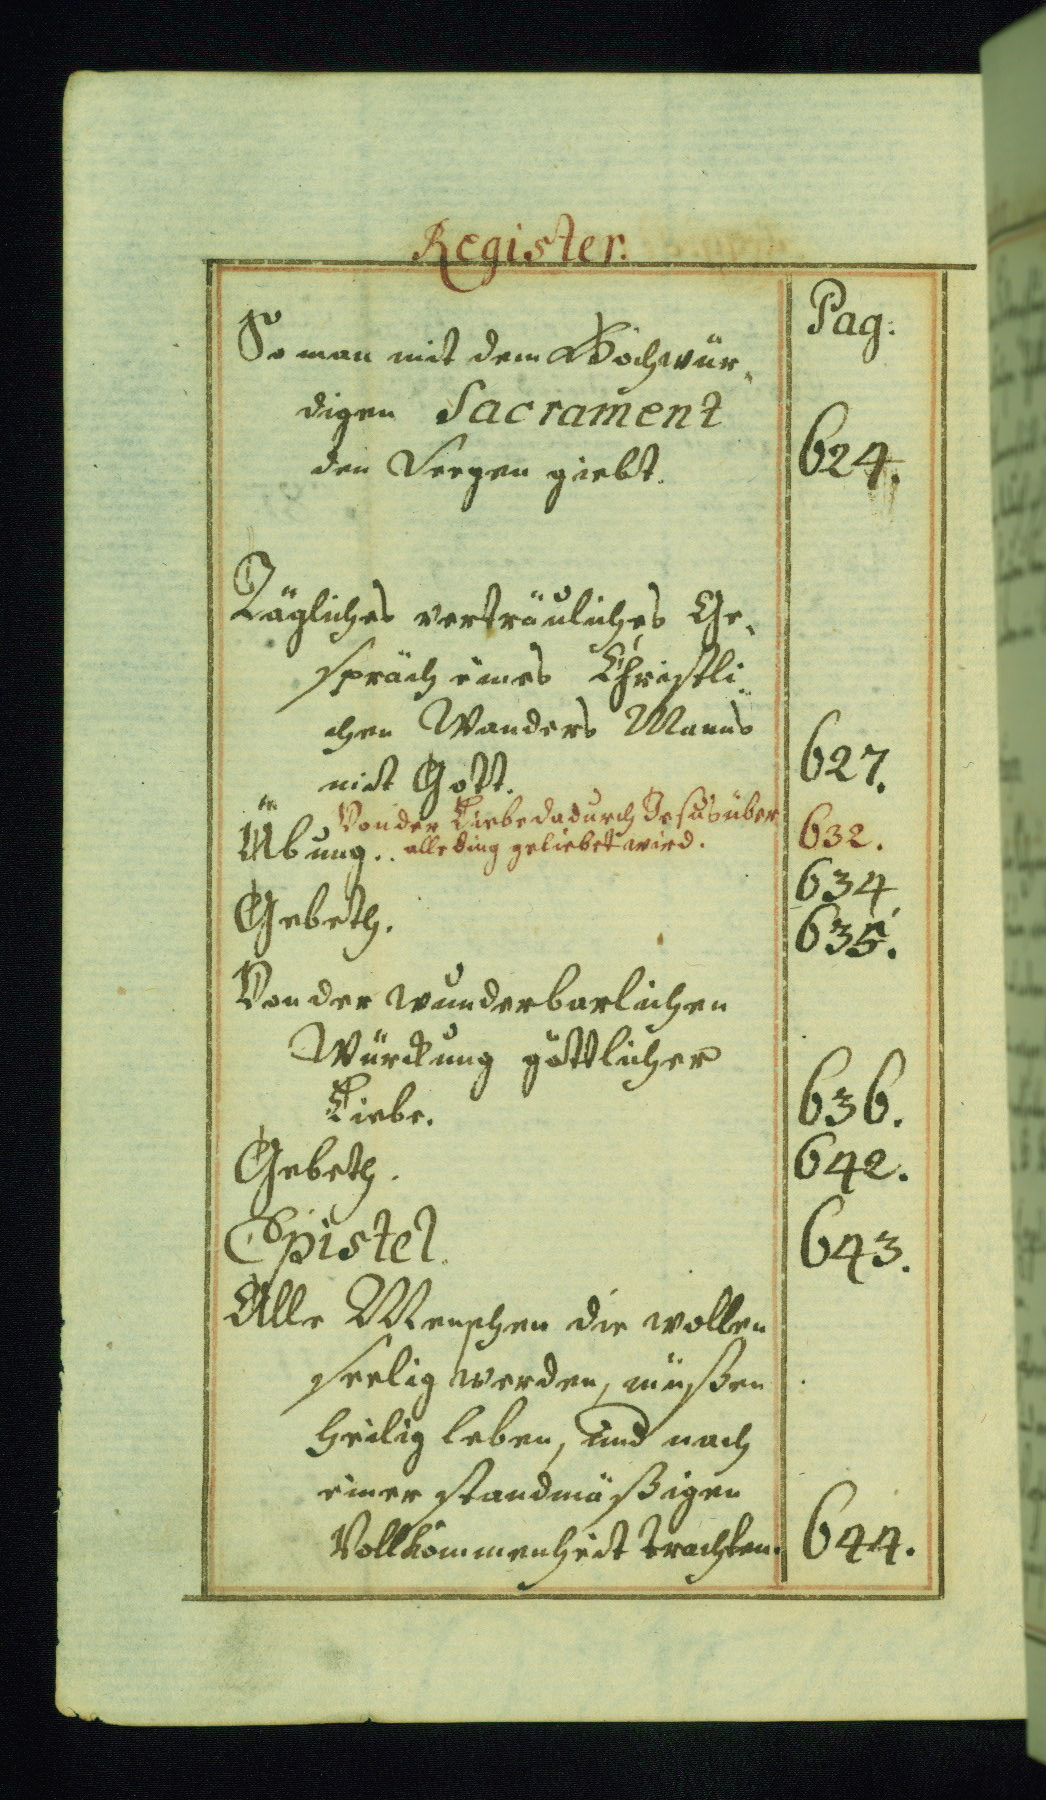 Register.
Pag:
So man mit dem Hochwür-
digen Sacrament
den Seegen giebt. 624.
Tägliches verträuliches Ge-
spräch eines Christli-
chen Wanders Manns
mit Gott. 627.
Von der Liebe dadurch Jesus über
Übung.. alle ding geliebet wird. 632.
634
Gebeth. 635.
Von der wunderbarlichen
Würckung göttlicher
Liebe. 636.
Gebeth. 642.
Epistel. 643.
Alle Menschen die wollen
seelig werden, müßen
heilig leben, und nach
einer standmäßigen
Vollkommenheit trachten. 644.